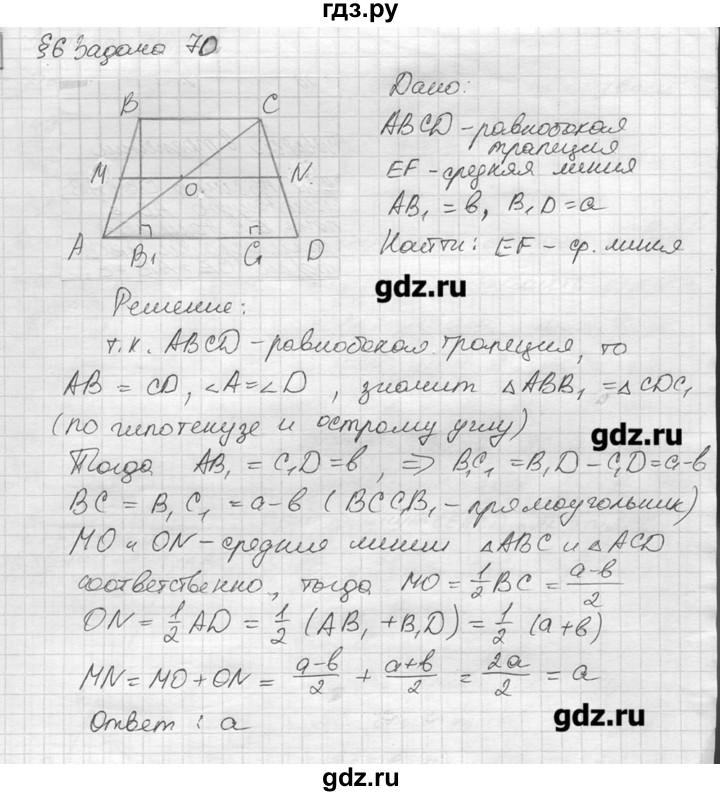 гдз.ру
§6 Задача 70
B C
M N
O
A B₁ C₁ D
Дано:
ABCD - равнобокая
трапеция
EF - средняя линия
AB₁ = b, B₁D = a
Найти: EF - ср. линия
gdz.ru
Решение:
т.к. ABCD - равнобокая трапеция, то
AB = CD, ∠A = ∠D , значит △ABB₁ = △CDC₁
(по гипотенузе и острому углу)
gdz.ru
Тогда AB₁ = C₁D = b , ⇒ B₁C₁ = B₁D - C₁D = a-b
BC = B₁C₁ = a-b ( BCC₁B₁ - прямоугольник)
MO и ON - средние линии △ABC и △ACD
соответственно, тогда MO = 1/2 BC = (a-b)/2
ON = 1/2 AD = 1/2 (AB₁ + B₁D) = 1/2 (a+b)
MN = MO + ON = (a-b)/2 + (a+b)/2 = 2a/2 = a
Ответ : a
gdz.ru
gdz.ru